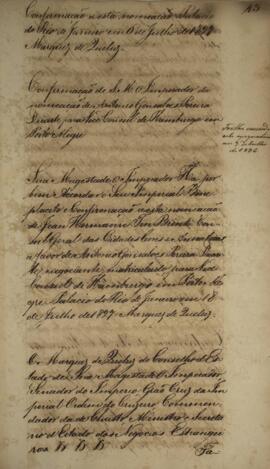 Confirmação a esta nomeação Palacio
do Rio de Janeiro em de Julho de 1827
Marquez de Queluz.
Confirmação de S. M. O Imperador da
nomeação de Antonio Gonsalves Pereira
Duarte para Vice Consul de Hamburgo em
Porto Alegre
Sua Magestade O Imperador Ha por
bem Accordar o Seu Imperial Bene
placito e Confirmação a esta nomeação
de Joan Hermann Ten Brinck Con
sul Geral das Cidades Livres e Anseaticas
a favor de Antonio Gonsalves Pereira Duar
te, negociante matriculado para Vice
Consul de Hamburgo em Porto Ale
gre. Palacio do Rio de Janeiro em 18
de Julho de 1827. Marquez de Queluz.
O Marquez de Queluz do Conselho d'Es
tado de Sua Magestade O Imperador
Senador do Imperio Grão Cruz da Im
perial Ordem do Cruzeiro Commen
dador da de Christo Ministro e Secreta
rio d'Estado dos Negocios Estrangei
ros